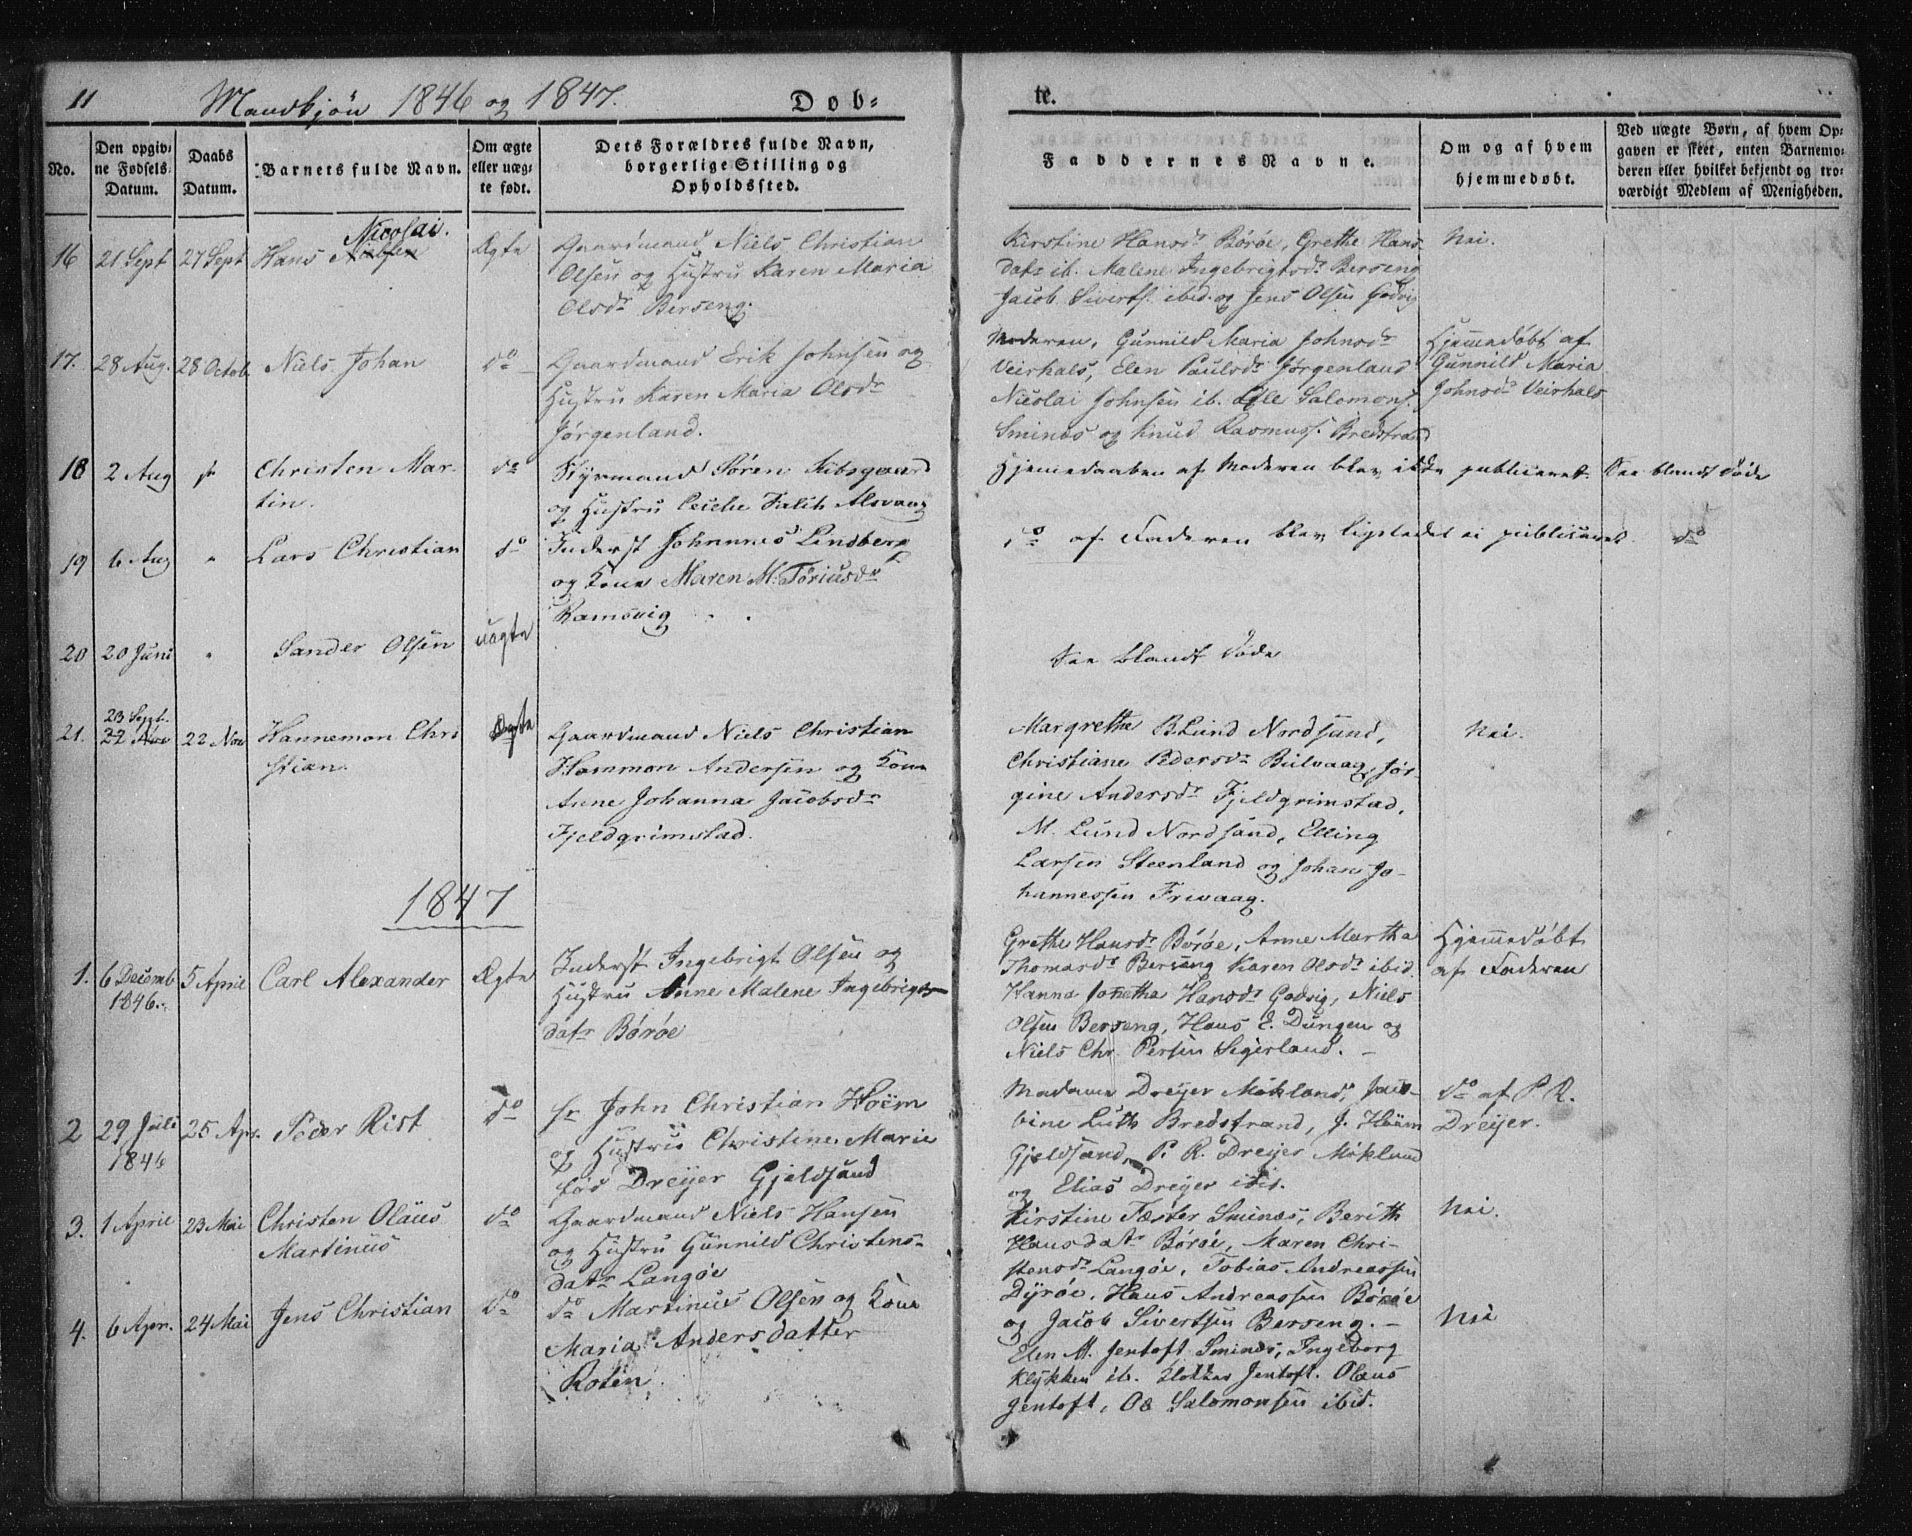 11 Mandkjön 1846 og 1847. Døb-
te.
No.
Den opgiv-
ne Fødsels-
Datum.
Daabs
Datum.
Barnets fulde Navn.
Om ægte
eller uæg-
te født.
Dets Forældres fulde Navn,
borgerlige Stilling og
Opholdssted.
Faddernes Navne.
Om og af hvem
hjemmedøbt.
Ved uægte Børn, af hvem Op-
gaven er skeet, enten Barnemo-
deren eller hvilket bekjendt og tro-
værdigt Medlem af Menigheden.
Nicolai.
16 21 Sept 27 Sept Hans Ægte
Gaardmand Niels Christian
Olsen og Hustru Karen Maria
Olsdr Berseng.
Kirstine Hansdr Børøe, Grethe Hans
datr ib. Malene Ingebrigtsdr Berseng
Jacob Siverts. ibid. og Jens Olsen Godvig
Nei.
17. 28 Aug. 28 Octob Niels Johan do
Gaardmand Erik Johnsen og
Hustru Karen Maria Olsdr
Jørgenland.
Moderen, Gunnild Maria Johnsdr
Veirhals, Elen Paulsdr Jørgenland
Nicolai Johnsen ib. Ole Salomons.
Sminæs og Knud Rasmuss. Bredstrand
Hjemmedøbt af
Gunnild Maria
Johnsdr Veirhals
18 2 Aug " Christen Mar-
tin.
do
Styrmand Søren
og Hustru Falch Alsvaag
Hjemedaaben af Moderen blev ikke publiceret. See blandt Døde
19 6 Aug " Lars Christian do
Inderst Johannes Lindberg
og Kone Maren M. Toriusdr
Ramsvig
do af Faderen blev ligeledes ei publiceret do
20 20 Juni " Sander Olsen uægte
See blandt Døde
23 Sept.
21. 22 Nov 22 Nov Hannemon Chri
stian.
Ægte
Gaardmand Niels Christian
Hammon Andersen og Kone
Anne Johanna Jacobsdr
Fjeldgrimstad.
Margrethe B Lund Nordsand,
Christiane Pedersdr Bülvaag, Jør-
gine Andersdr Fjeldgrimstad,
M. Lund Nordsand, Elling
Larsen Steenland og Johan Jo-
hannessen Frivaag.
Nei.
1847
1. 6 Decemb
1846.
5 April Carl Alexander Ægte
Inderst Ingebrigt Olsen og
Hustru Anne Malene Ingebrigts
datr Børøe
Grethe Hansdr Børøe, Anne Martha
Thomasdr Berseng Karen Olsdr ibid.
Hanna Jonetha Hansdr Godvig, Niels
Olsen Berseng, Hans E. Dungen og
Niels Chr. Persen Segerland.
Hjemmedøbt
af Faderen
2 29 Juli
1846
25 Apr. Peder Rist do
Hr John Christian Hoëm
og Hustru Christine Marie
fød Dreyer Gjeldsand
Madame Dreyer Möklund, Jaco-
bine Luth Bredstrand, J. Höem
Gjeldsand, P. R. Dreyer Möklund
og Elias Dreyer ibid.
do af P. R.
Dreyer.
3. 1 April 23 Mai Christen Olaus
Martinus
do
Gaardmand Niels Hansen
og Hustru Gunnild Christens-
datr Langøe
Kirstine Fæster Sminæs, Berith
Hansdatr Børøe, Maren Chri-
stensdr Langøe, Tobias Andreassen
Dyrøe, Hans Andreassen Börøe
og Jacob Sivertsen Berseng.
Nei.
4. 6 Apr. 24 Mai Jens Christian do
do Martinus Olsen og Kone
Maria Andersdatter
Roten.
Elen M. Jentoft Sminæs, Ingeborg
Klykken ib. Jentoft. Olaus
Jentoft, Ole Salomonsen ibid.
Nei